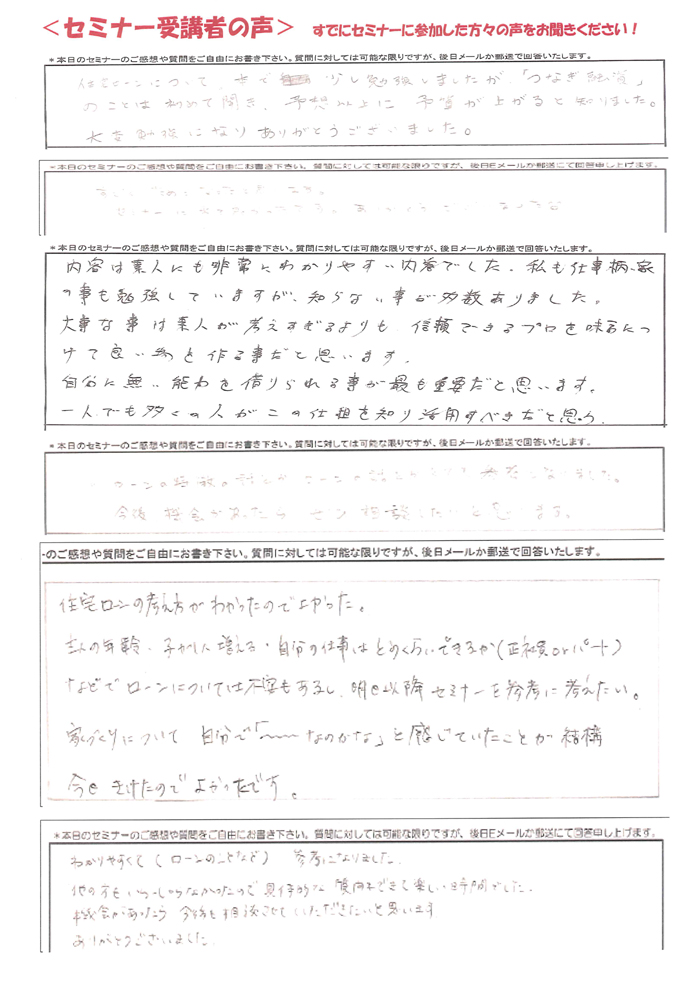 ＜セミナー受講者の声＞ すでにセミナーに参加した方々の声をお聞きください！
＊本日のセミナーのご感想や質問をご自由にお書き下さい。質問に対しては可能な限りですが、後日メールか郵送で回答いたします。
住宅ローンについて、少し勉強しましたが、「つなぎ融資」
のことは初めて聞き、予想以上に予算が上がると知りました。
大変勉強になりありがとうございました。
＊本日のセミナーのご感想や質問をご自由にお書き下さい。質問に対しては可能な限りですが、後日Eメールか郵送にて回答申し上げます。
＊本日のセミナーのご感想や質問をご自由にお書き下さい。質問に対しては可能な限りですが、後日メールか郵送で回答いたします。
内容は素人にも非常にわかりやすい内容でした。私も仕事柄、家
の事も勉強していますが、知らない事が多数ありました。
大事な事は素人が考えすぎるよりも、信頼できるプロを味方につ
けて良い物を作る事だと思います。
自分に無い能力を借りられる事が最も重要だと思います。
一人でも多くの人がこの仕組を知り活用すべきだと思う。
＊本日のセミナーのご感想や質問をご自由にお書き下さい。質問に対しては可能な限りですが、後日メールか郵送で回答いたします。
ローンの 話とか ローンの 参考になりました。
今後 機会があったら ぜひ 相談したいと思います。
のご感想や質問をご自由にお書き下さい。質問に対しては可能な限りですが、後日メールか郵送で回答いたします。
住宅ローンの考え方がわかったのでよかった。
主人の年齢・子供が増える・自分の仕事はどのくらいできるか（正社員orパート）
などでローンについては不安もあるし、明日以降セミナーを参考に考えたい。
家づくりについて 自分で「〜〜〜なのかな」と感じていたことが結構
今日きけたのでよかったです。
＊本日のセミナーのご感想や質問をご自由にお書き下さい。質問に対しては可能な限りですが、後日Eメールか郵送にて回答申し上げます。
わかりやすくて（ローンのことなど） 参考になりました。
他の方もいらっしゃらなかったので具体的な質問もできて楽しい時間でした。
機会があったら 今後も相談させていただきたいと思います
ありがとうございました。